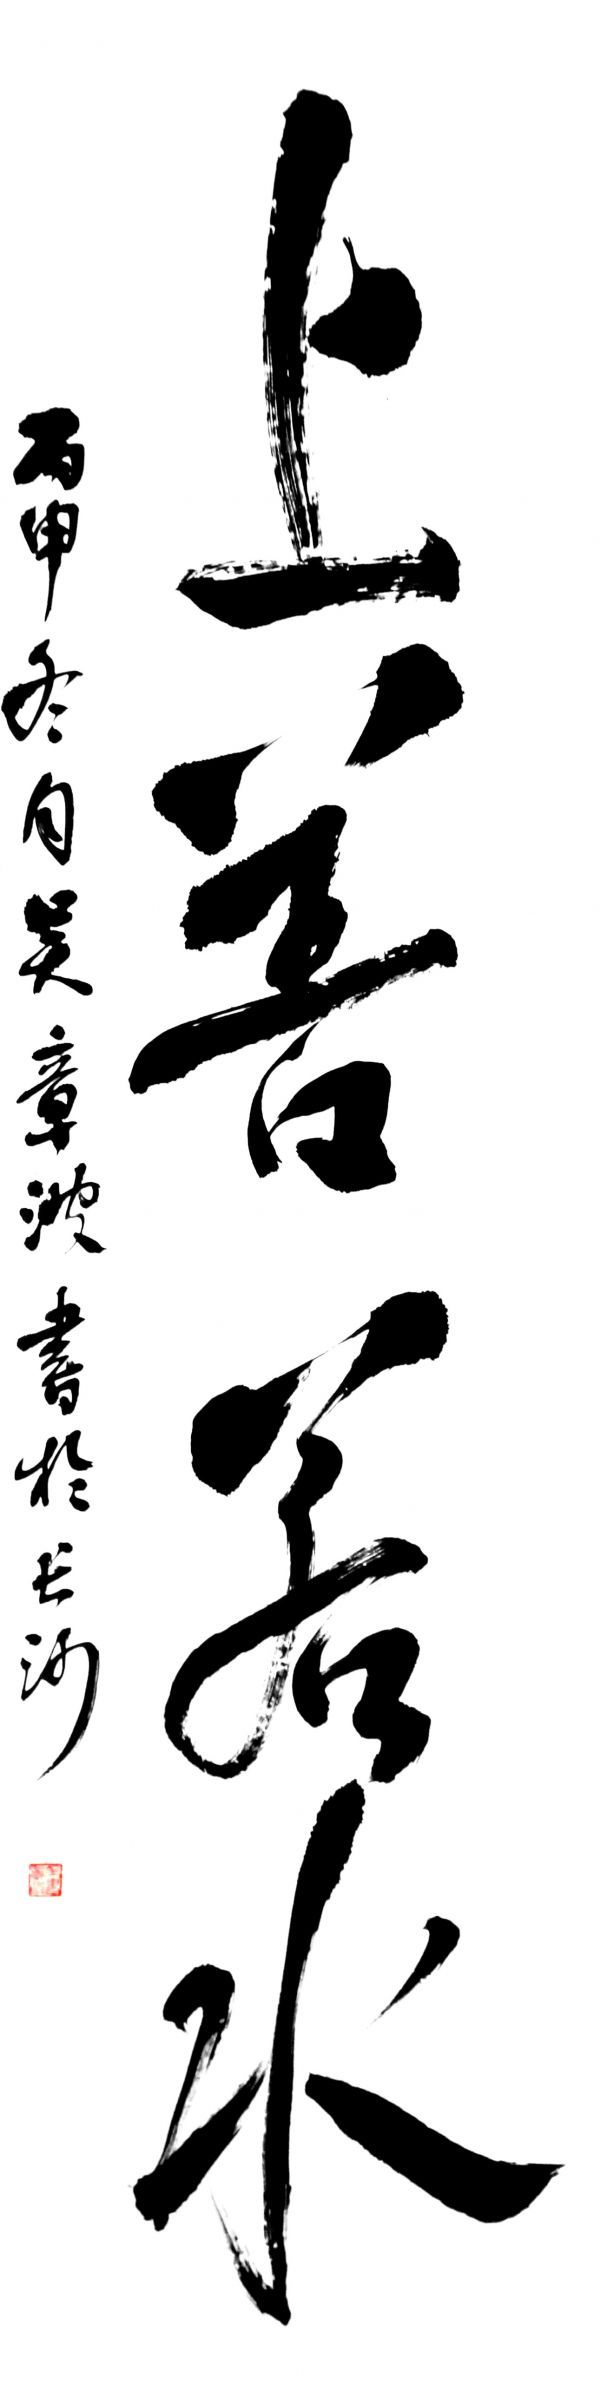 上善若水
丙申冬月吴章波書於长沙